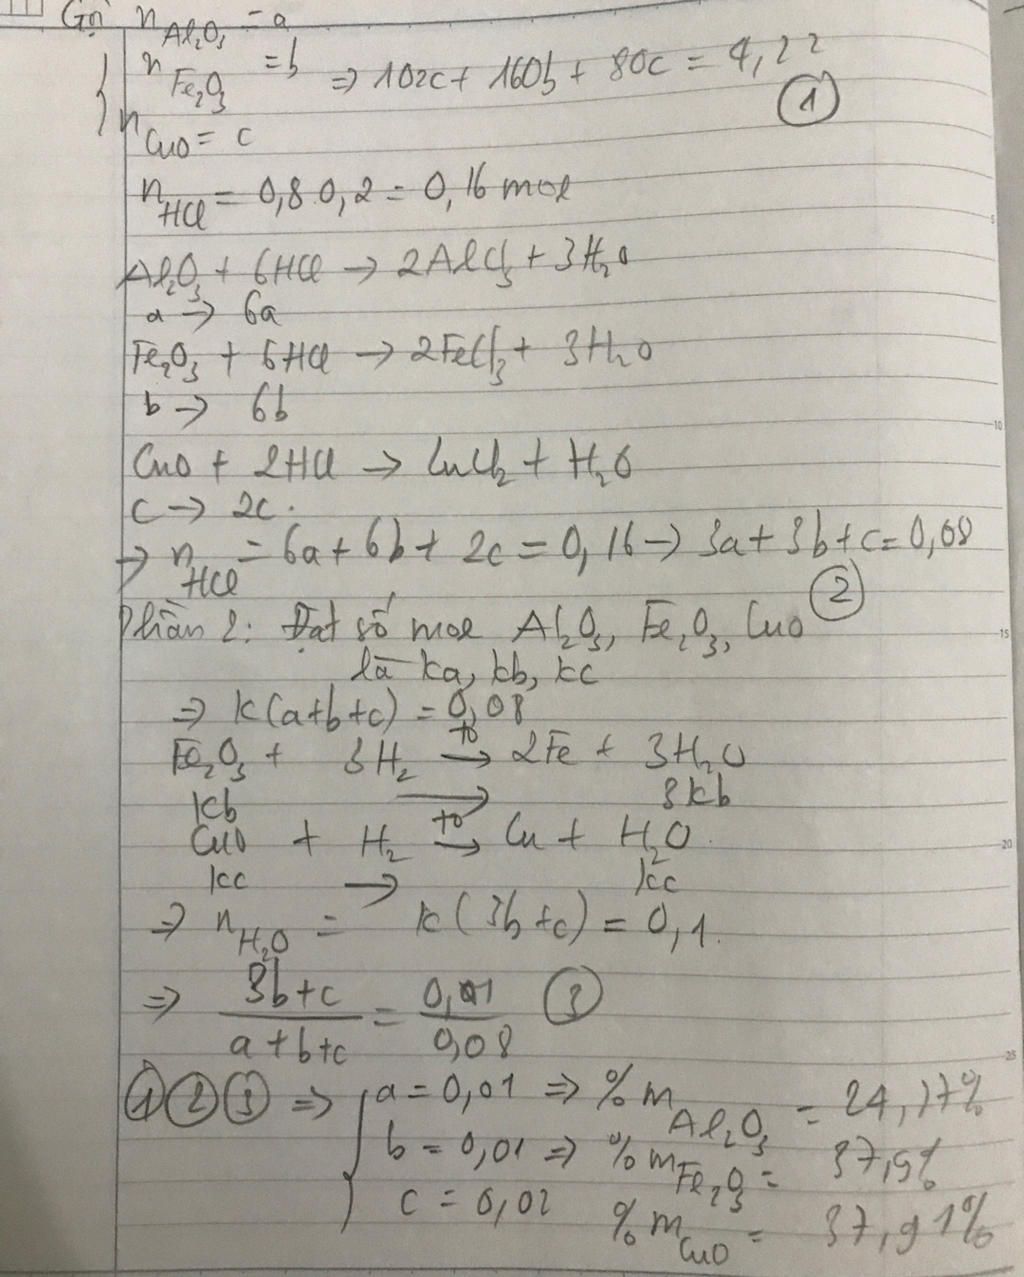 Gọi n Al₂O₃ = a
n Fe₂O₃ = b ⇒ 102c + 160b + 80c = 4,22 ①
n CuO = c
n HCl = 0,8.0,2 = 0,16 mol
Al₂O₃ + 6HCl → 2AlCl₃ + 3H₂O
a → 6a
Fe₂O₃ + 6HCl → 2FeCl₃ + 3H₂O
b → 6b
CuO + 2HCl → CuCl₂ + H₂O
c → 2c.
→ n HCl = 6a + 6b + 2c = 0,16 → 3a + 3b + c = 0,08 ②
Phần 2: Đặt số mol Al₂O₃, Fe₂O₃, CuO
là ka, kb, kc
⇒ k(a+b+c) = 0,08
Fe₂O₃ + 3H₂ →(t°) 2Fe + 3H₂O
kb → 3kb
CuO + H₂ →(t°) Cu + H₂O
kc → kc
⇒ n H₂O = k(3b+c) = 0,1.
⇒ (3b+c)/(a+b+c) = 0,01/0,08 ③
① ② ③ ⇒ { a = 0,01 ⇒ %m Al₂O₃ = 24,17%
b = 0,01 ⇒ %m Fe₂O₃ = 37,9%
c = 0,02 %m CuO = 37,91%